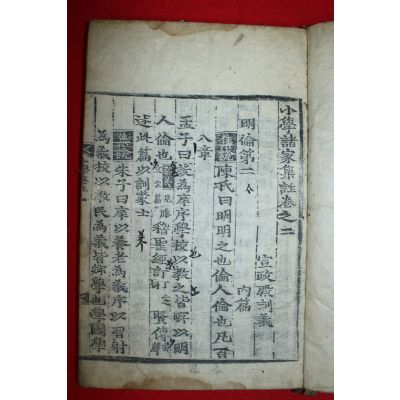 小學諸家集註卷之二
宣政殿訓義
內篇
明倫第二
集說陳氏曰明明之也倫人倫也凡百
八章
孟子曰設為庠序學校以教之皆所以明
人倫也稽聖經訂賢傳
述此篇以訓蒙士
集說朱子曰庠以養老為義序以習射
為義校以教民為義皆鄉學也學國學